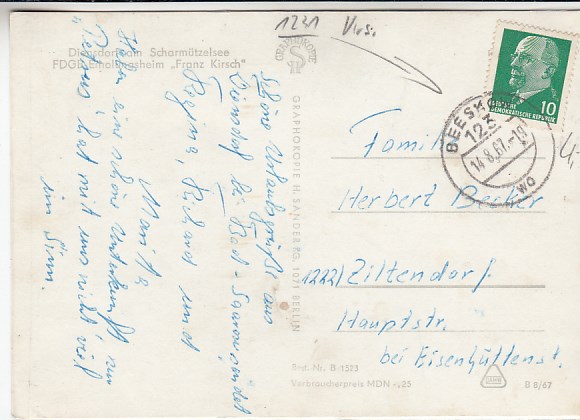 1231 Virs.
Diensdorf am Scharmützelsee
FDGB-Erholungsheim „Franz Kirsch"
GRAPHOKOPIE
GRAPHOKOPIE H. SANDER KG, 1071 BERLIN
DEUTSCHE
DEMOKRATISCHE REPUBLIK
10
BEESKOW
123
14.8.67.-19
wo
Schöne Urlaubsgrüße aus
Diensdorf bei Bad-Saarow sendet
Regina, Richard und
Moritz
Haben eine schöne Unterkunft, nur
"Petrus" hat mit uns nicht viel
im Sinn.
Familie
Herbert Becker
1222/Ziltendorf
Hauptstr.
bei Eisenhüttenst.
Best.-Nr. B 1523
Verbraucherpreis MDN -,25
B 8/67